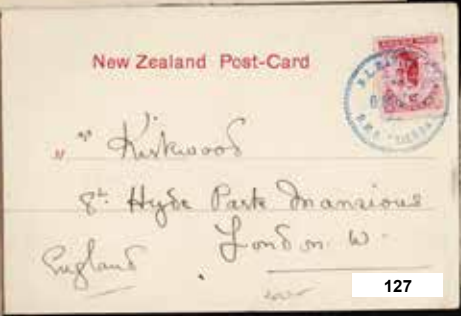 New Zealand Post-Card
Kirkwood
8 Hyde Park Mansions
London. W.
England
over
127